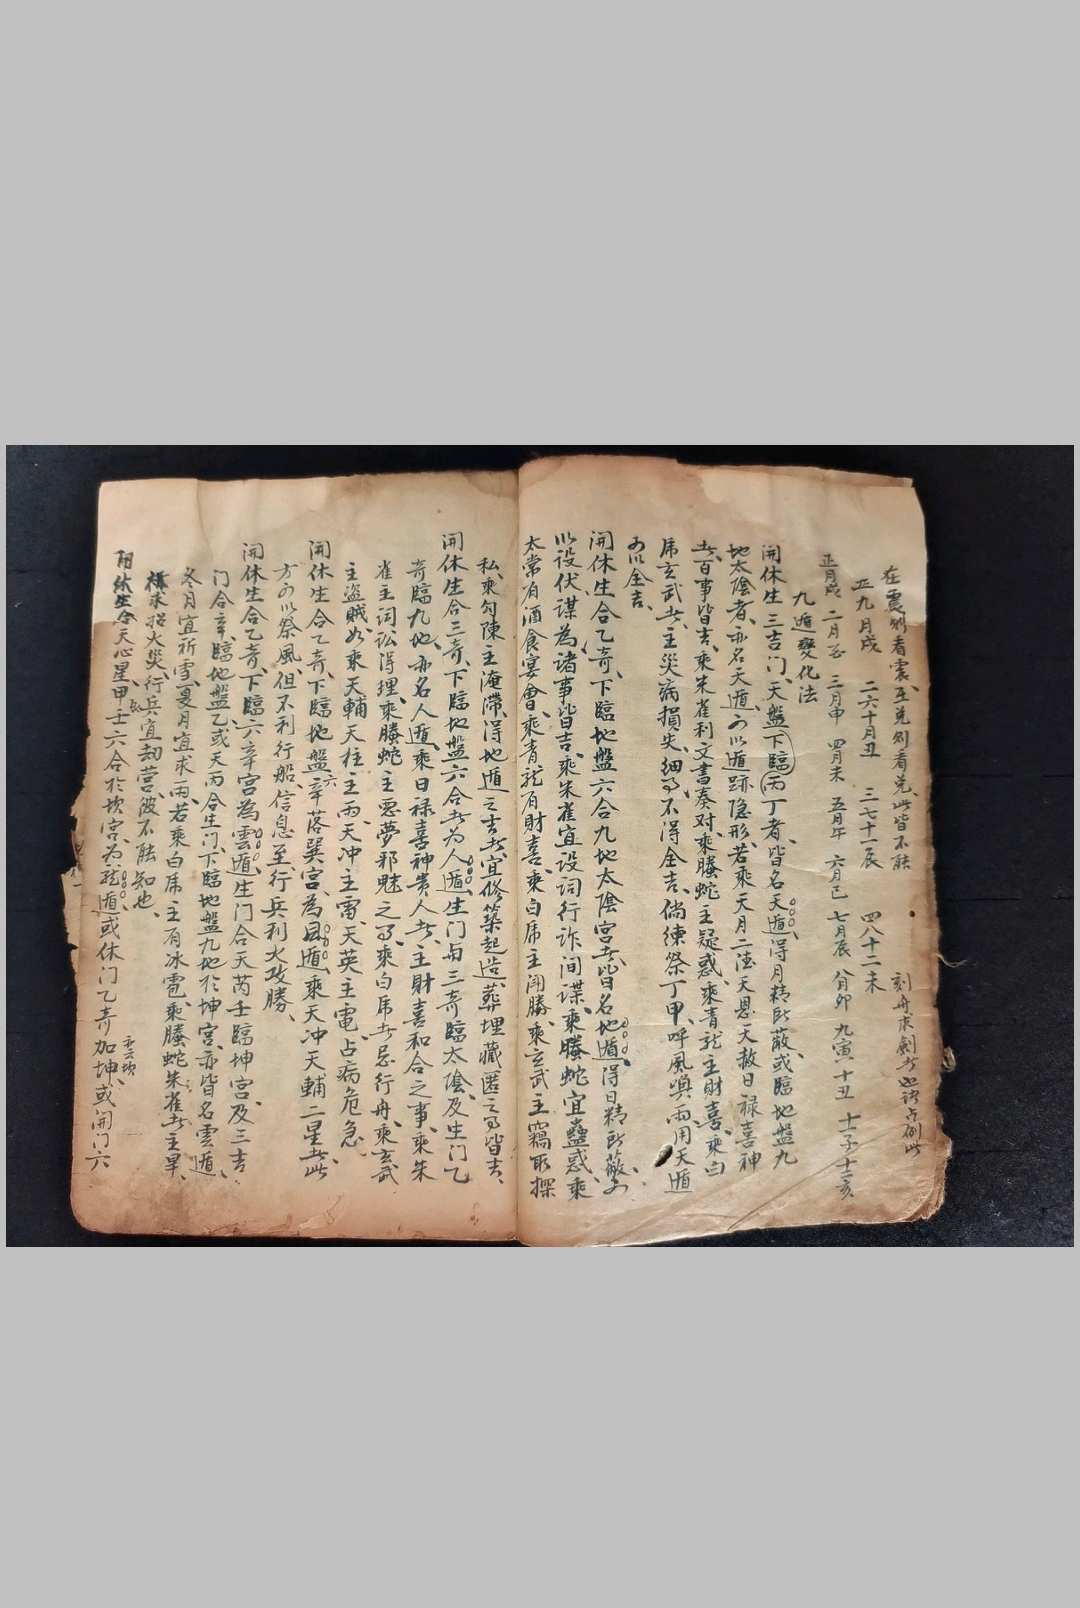 在震則看震、在兑則看兑、此皆不能
刻舟求劍者也諸占例此
正九月戌 二六十月丑 三七十一辰 四八十二未
正月戌 二月酉 三月申 四月未 五月午 六月巳 七月辰 八月卯 九寅 十丑 十一子 十二亥
九遁變化法
開休生三吉门、天盤下臨丙丁者、皆名天遁、得月精所蔽、或臨地盤九
地太陰者、亦名天遁、可以遁跡隐形、若乘天月二德天恩天赦日禄喜神
者、百事皆吉、乘朱雀利文書奏对、乘螣蛇主疑惑、乘青龍主財喜、乘白
虎玄武者、主災病損失、细事不得全吉、倘練祭丁甲、呼風喚雨用天遁
可以全吉、
開休生合乙奇、下臨地盤六合九地太陰宮者、皆名地遁、得日精所蔽、可
以设伏謀為、诸事皆吉、乘朱雀宜设词行诈间諜、乘螣蛇宜蠱惑、乘
太常有酒食宴會、乘青龍有財喜、乘白虎主闭勝、乘玄武主竊取探
私、乘勾陳主淹滯、得地遁之吉者、宜修築起造、葬埋藏匿之事皆吉、
開休生合三奇、下臨地盤六合者、为人遁、生门与三奇臨太陰、及生门乙
奇臨九地、亦名人遁、乘日禄喜神贵人者、主財喜和合之事、乘朱
雀主词讼得理、乘螣蛇主惡夢邪魅之事、乘白虎者忌行舟、乘玄武
主盗賊、如乘天輔天柱主雨、天冲主雷、天英主電、占病危急、
開休生合乙奇、下臨地盤六辛落巽宫、為風遁、乘天冲天輔二星者、此
方可以祭風、但不利行船、信息至行兵利火攻勝、
開休生合乙奇、下臨六辛宮為雲遁、生门合天芮壬臨坤宫、及三吉
门合辛、臨地盤乙、或天丙合生门、下臨地盤九地於坤宫、亦皆名雲遁、
冬月宜祈雪、夏月宜求雨、若乘白虎主有冰雹、乘螣蛇朱雀者主旱、
樣求招火災、行兵宜刼营、彼不能知也、
開休生合天心星、甲壬六合於坎宫、为龍遁、或休门乙奇加坤、或開门六